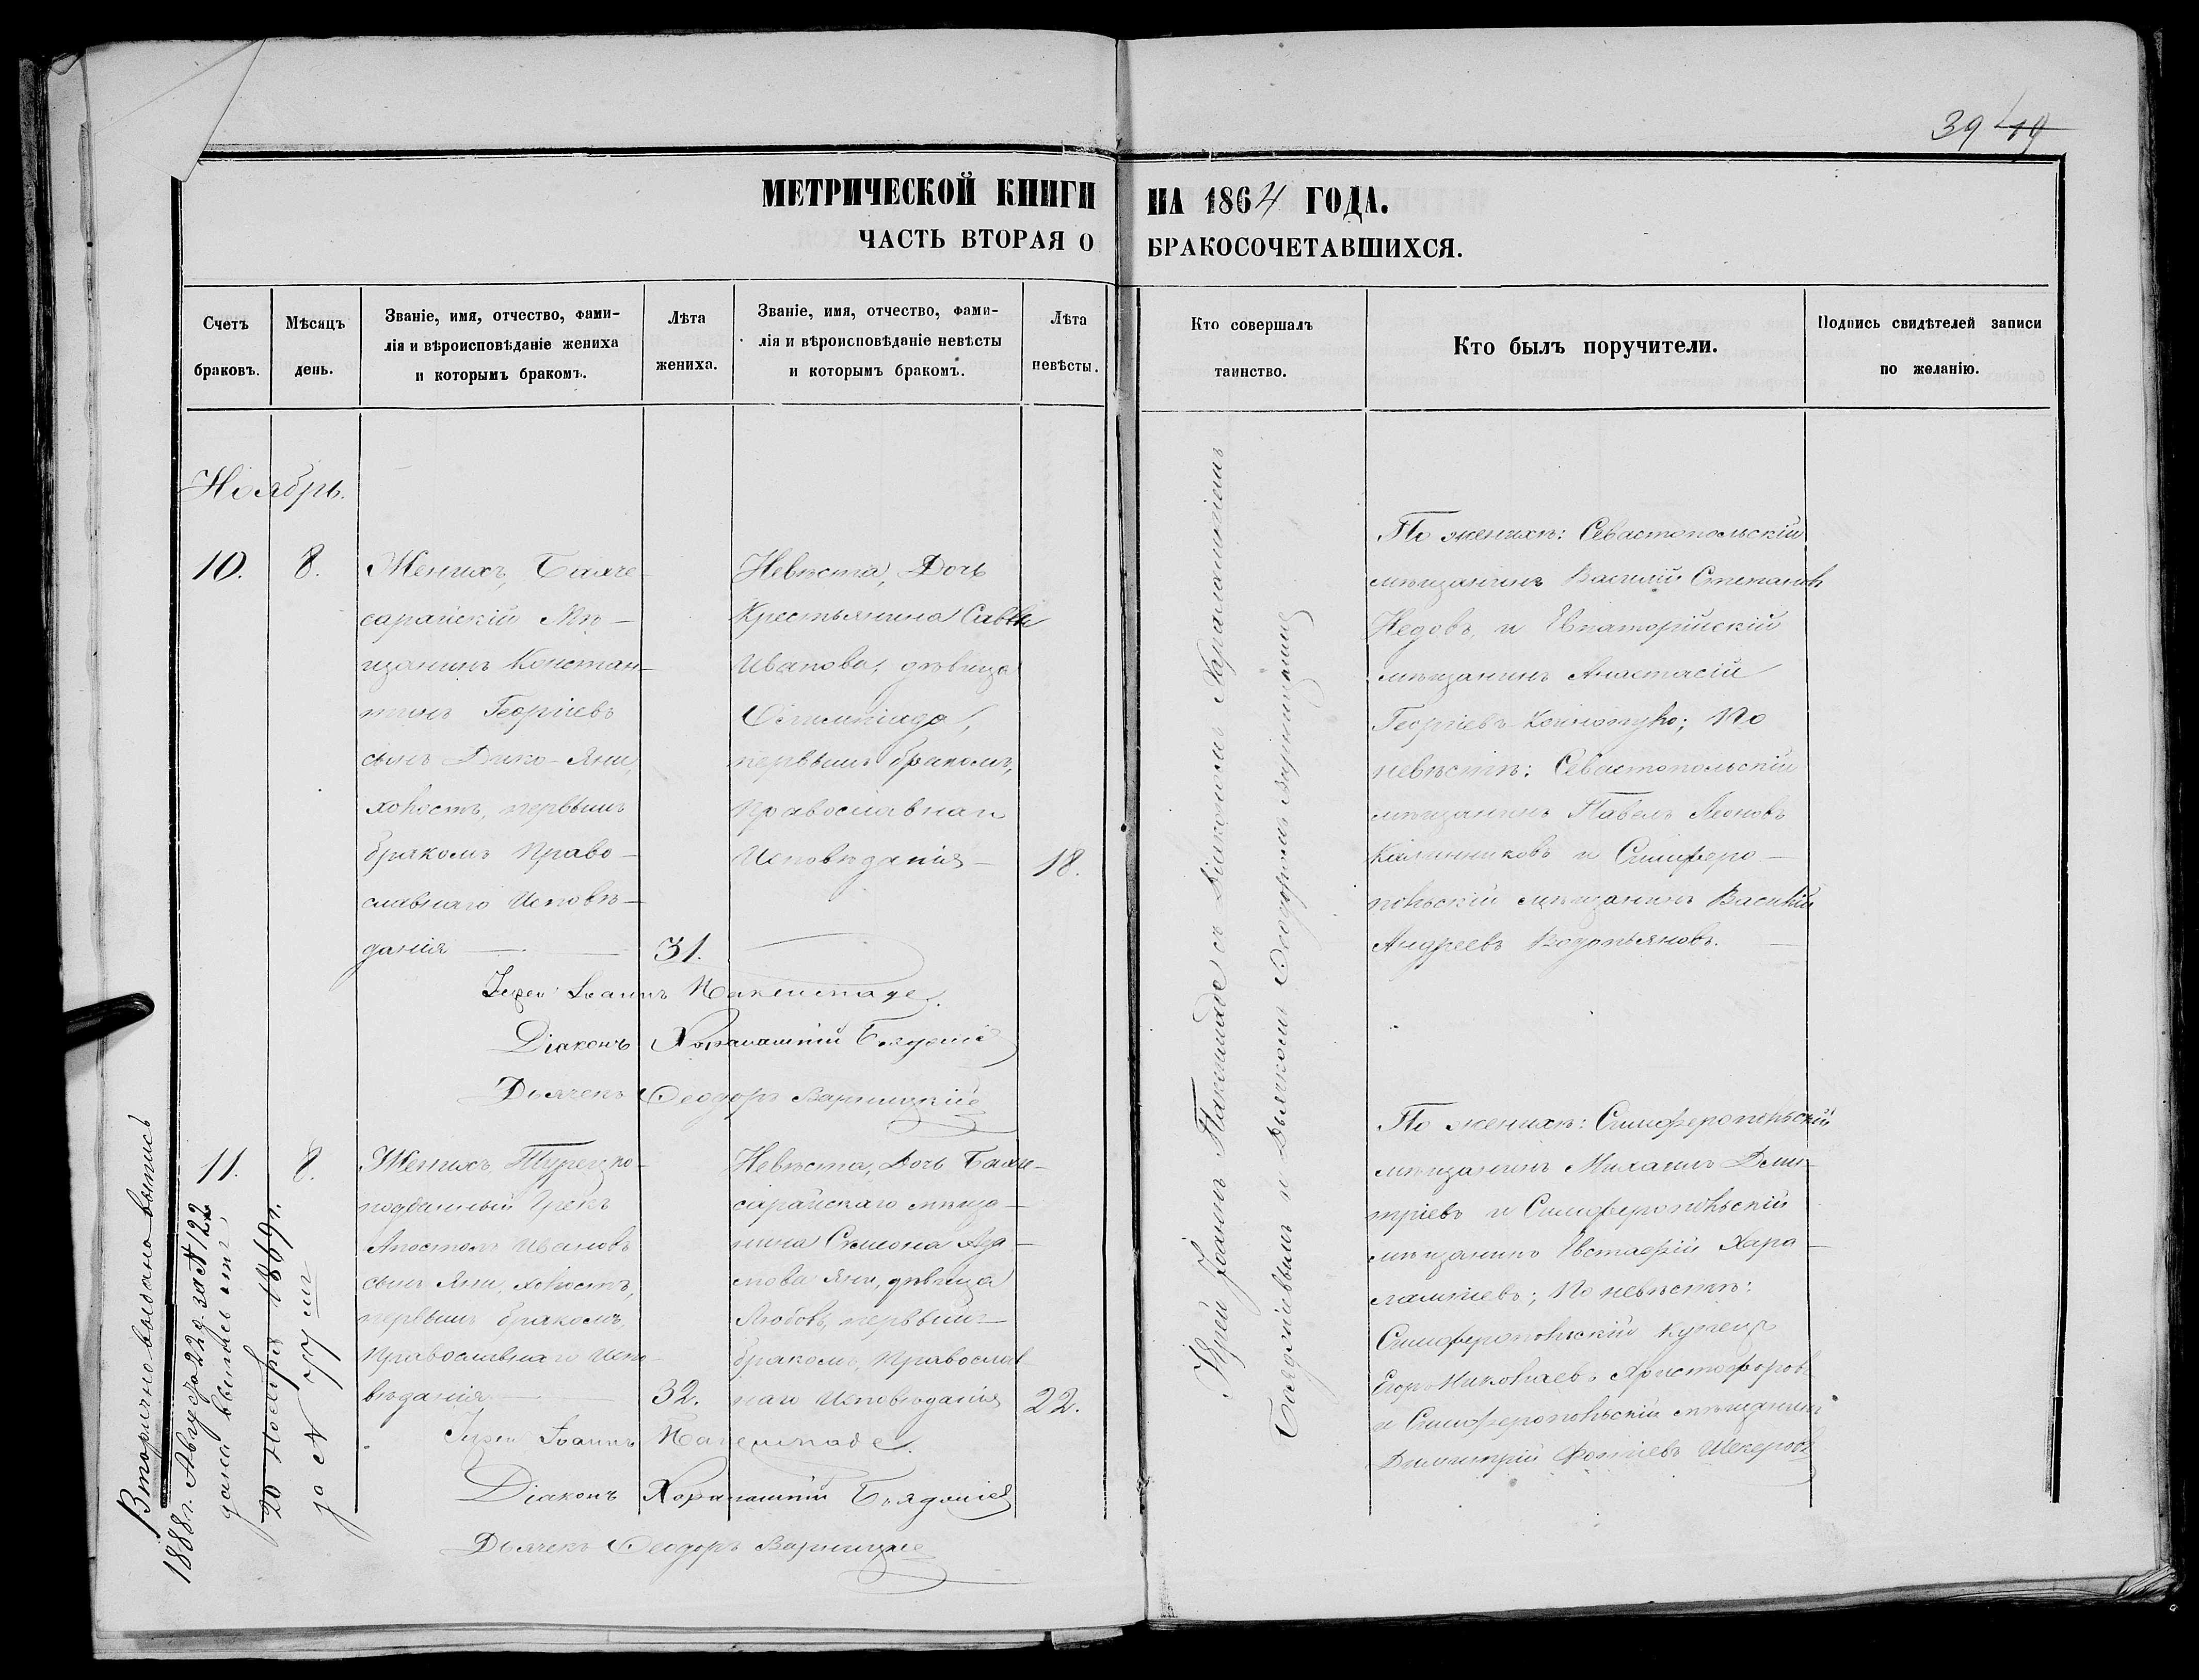 39 49
МЕТРИЧЕСКОЙ КНИГИ НА 1864 ГОДА.
ЧАСТЬ ВТОРАЯ О БРАКОСОЧЕТАВШИХСЯ.
Счетъ браковъ.
Мѣсяцъ день.
Званіе, имя, отчество, фами-
лія и вѣроисповѣданіе жениха
и которымъ бракомъ.
Лѣта жениха.
Званіе, имя, отчество, фами-
лія и вѣроисповѣданіе невѣсты
и которымъ бракомъ.
Лѣта невѣсты.
Кто совершалъ
таинство.
Кто былъ поручители.
Подпись свидѣтелей записи
по желанію.
Ноябрь.
10.
8.
Женихъ, Бахче-
сарайскій Мѣ-
щанинъ Констан-
тинъ Георгіевъ
сынъ Дико-Яни,
холостъ, первымъ
бракомъ Право-
славнаго Исповѣ-
данія
31.
Невѣста, Дочь
Крестьянина Саввы
Иванова, дѣвица
Олимпіада,
первымъ бракомъ,
Православнаго
Исповѣданія
18.
Іерей Іоаннъ
Діаконъ Харалампій
Дьячекъ Ѳеодоръ Варницкій
По женихѣ: Севастопольскій
мѣщанинъ Василій Степановъ
Недовъ, и Евпаторійскій
мѣщанинъ Анастасій
Георгіевъ По
невѣстѣ: Севастопольскій
мѣщанинъ Павелъ Леоновъ
Калинниковъ и Симферо-
польскій мѣщанинъ Василій
Андреевъ
11.
8.
Женихъ Турецко-
подданный Грекъ
Апостолъ Ивановъ
сынъ Яни, холостъ,
первымъ бракомъ,
Православнаго Испо-
вѣданія
32.
Невѣста, Дочь Бахче-
сарайскаго мѣща-
нина Симеона
Яни, дѣвица
Любовь, первымъ
бракомъ, Православ-
наго Исповѣданія
22.
Іерей Іоаннъ
Діаконъ Харалампій
Дьячекъ Ѳеодоръ Варницкій
По женихѣ: Симферопольскій
мѣщанинъ Михаилъ Дими-
тріевъ и Симферопольскій
мѣщанинъ Евстафій Хара-
лампіевъ; По невѣстѣ:
Симферопольскій купецъ
Егоръ Николаевъ Христофоровъ
и Симферопольскій мѣщанинъ
Димитрій Фотіевъ Шекеровъ
Іерей Іоаннъ съ Діакономъ Харалампіемъ
и Дьячкомъ Ѳеодоромъ Варницкимъ
Вторично выдана выпись
1888 г. Августа 22 д. за № 122
дана выпись отъ
20 Ноября 1869 г.
за № 77